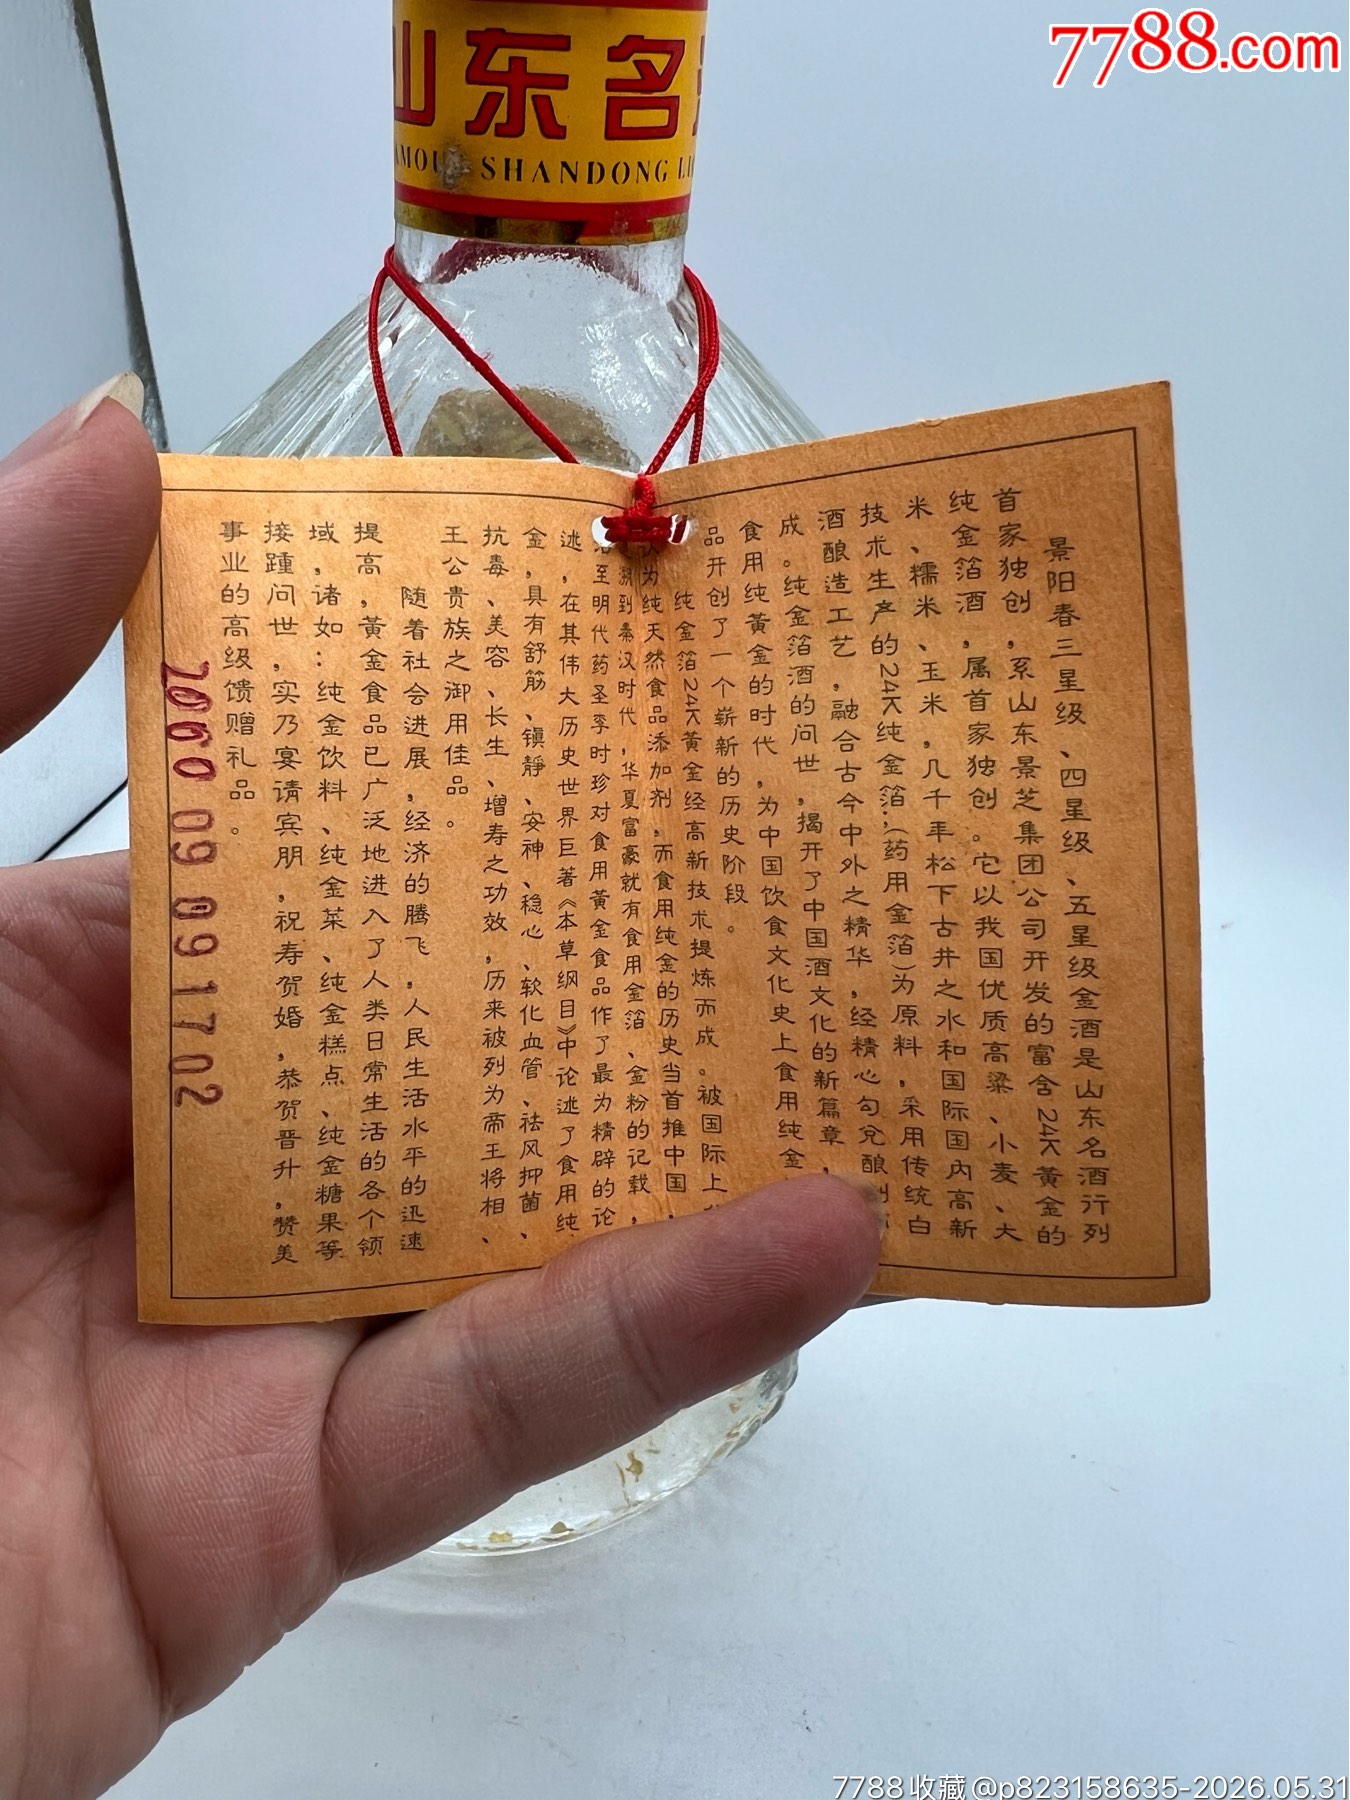 7788.com
山东名
SHANDONG
景阳春三星级、四星级、五星级金酒是山东名酒行列
首家独创，系山东景芝集团公司开发的富含24K黄金的
纯金箔酒，属首家独创。它以我国优质高粱、小麦、大
米、糯米、玉米，几千年松下古井之水和国际国内高新
技术生产的24K纯金箔.(药用金箔)为原料，采用传统白
酒酿造工艺，融合古今中外之精华，经精心勾兑酿
成。纯金箔酒的问世，揭开了中国酒文化的新篇章，
食用纯黄金的时代，为中国饮食文化史上食用纯金
品开创了一个崭新的历史阶段。
纯金箔24K黄金经高新技术提炼而成。被国际上
为纯天然食品添加剂，而食用纯金的历史当首推中国，
溯到秦汉时代，华夏富豪就有食用金箔、金粉的记载，
至明代药圣李时珍对食用黄金食品作了最为精辟的论
述，在其伟大历史世界巨著《本草纲目》中论述了食用纯
金，具有舒筋、镇静、安神、稳心、软化血管、祛风抑菌、
抗毒、美容、长生、增寿之功效，历来被列为帝王将相、
王公贵族之御用佳品。
随着社会进展，经济的腾飞，人民生活水平的迅速
提高，黄金食品已广泛地进入了人类日常生活的各个领
域，诸如：纯金饮料、纯金菜、纯金糕点、纯金糖果等
接踵问世，实乃宴请宾朋，祝寿贺婚，恭贺晋升，赞美
事业的高级馈赠礼品。
7788收藏@p823158635-2026.05.31